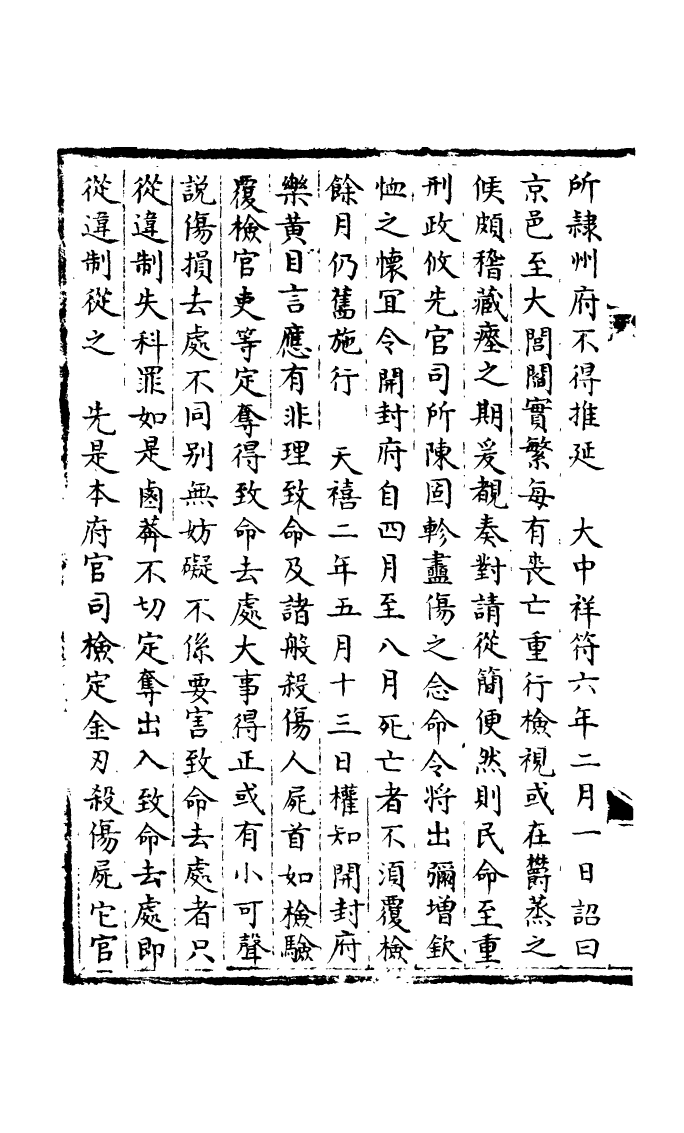 所隷州府不得推延　大中祥符六年二月一日詔曰
京邑至大閭閻實繁每有喪亡重行檢視或在欝蒸之
候頗稽藏瘞之期爰覩奏對請從簡便然則民命至重
刑政攸先官司所陳固軫盡傷之念命令將出彌增欽
恤之懷宜令開封府自四月至八月死亡者不須覆檢
餘月仍舊施行　天禧二年五月十三日權知開封府
樂黃目言應有非理致命及諸般殺傷人屍首如檢驗
覆檢官吏等定奪得致命去處大事得正或有小可聲
説傷損去處不同别無妨礙不係要害致命去處者只
從違制失科罪如是鹵莽不切定奪出入致命去處即
從違制從之　先是本府官司檢定金刃殺傷屍它官